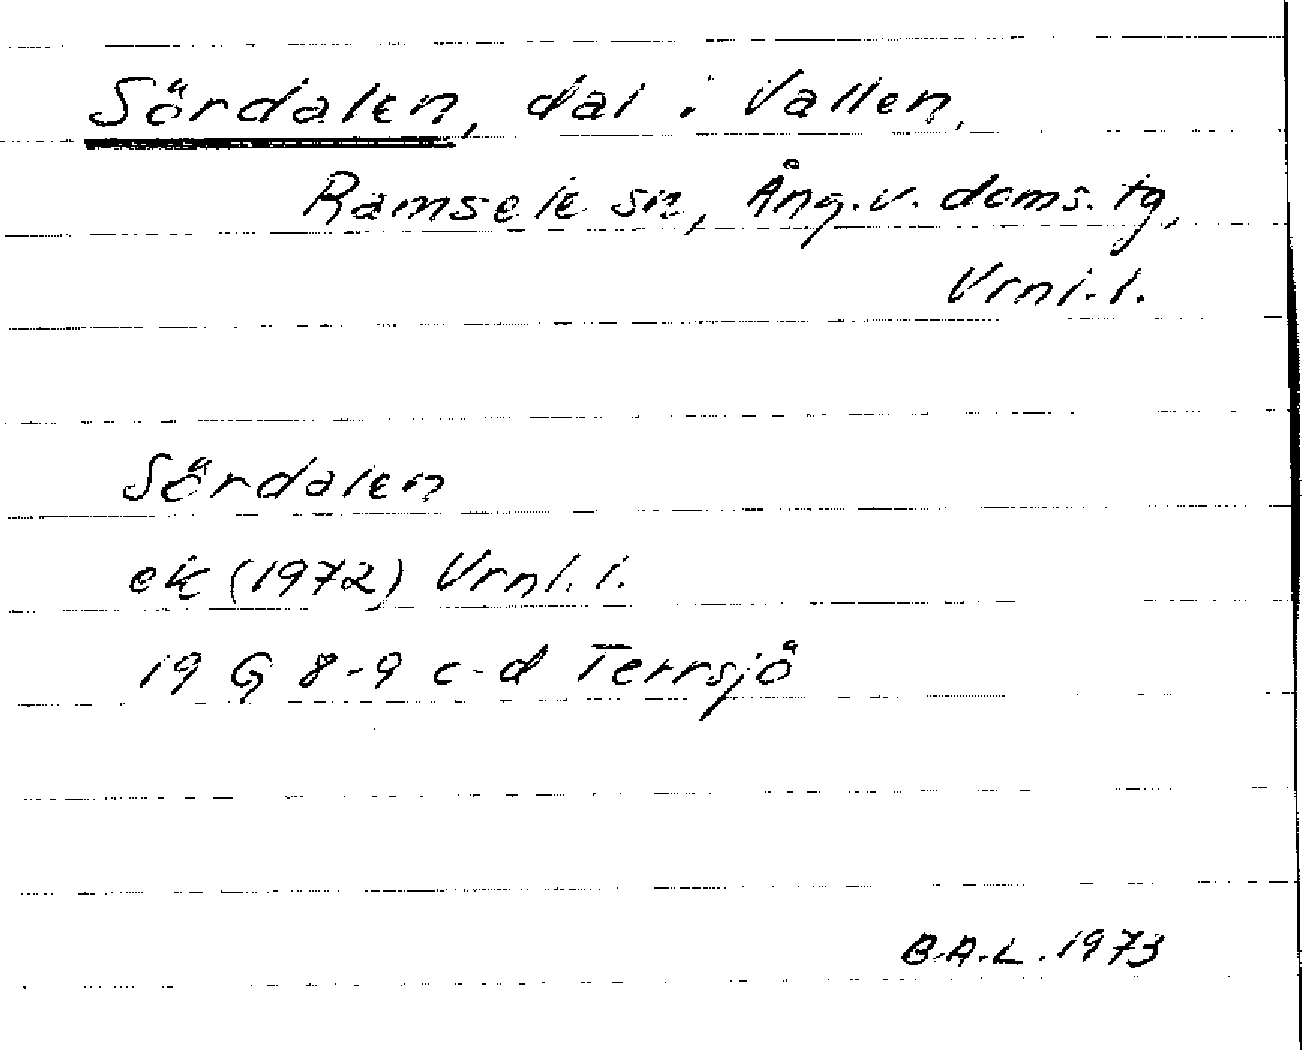 Sördalen, dal i Vallen,
Ramsele sn, Ång.v. doms. tg,
Vrnl.l.
Sördalen
ek (1972) Vrnl.l.
19 G 8-9 c-d Terrsjö
B.A.L. 1973